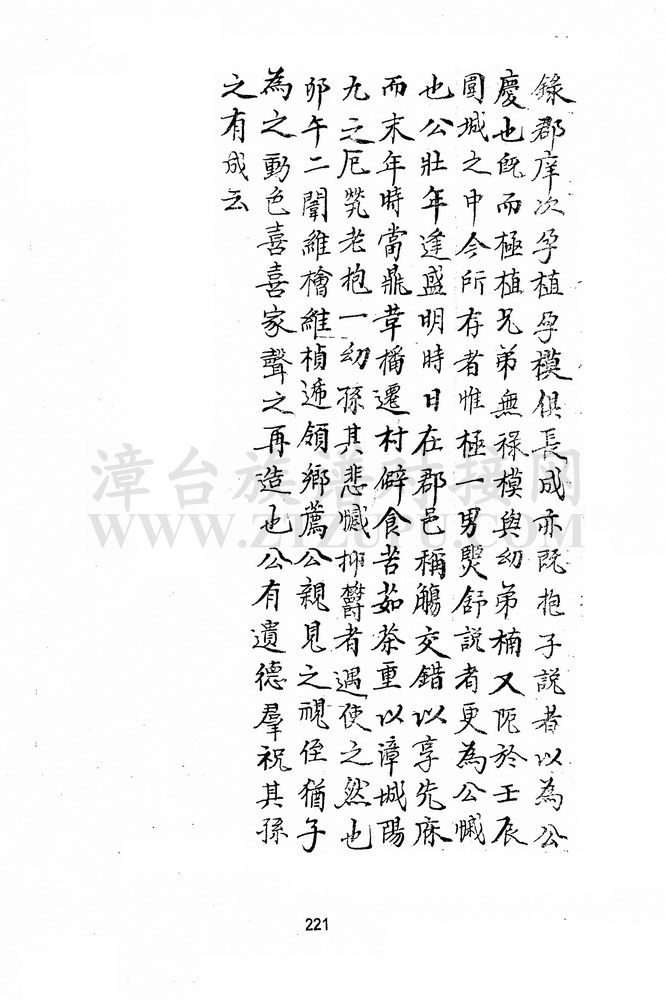 錄郡庠次孕植孕模俱長成亦既抱子說者以為公
慶也既而極植兄弟無祿模與幼弟楠又阨於壬辰
圍城之中今所存者惟極一男煛舒說者更為公慽
也公壯年逢盛明時日在郡邑稱觴交錯以享先庥
而末年時當鼎革播遷村僻食苦茹荼重以漳城陽
九之厄煢老抱一幼孫其悲慽抑欝者遇使之然也
卯午二闈維檜維楨遞領鄉薦公親見之視侄猶子
為之動色喜喜家聲之再造也公有遺德羣祝其孫
之有成云
漳台族谱对接网
WWW.ZTZUPU.COM
221